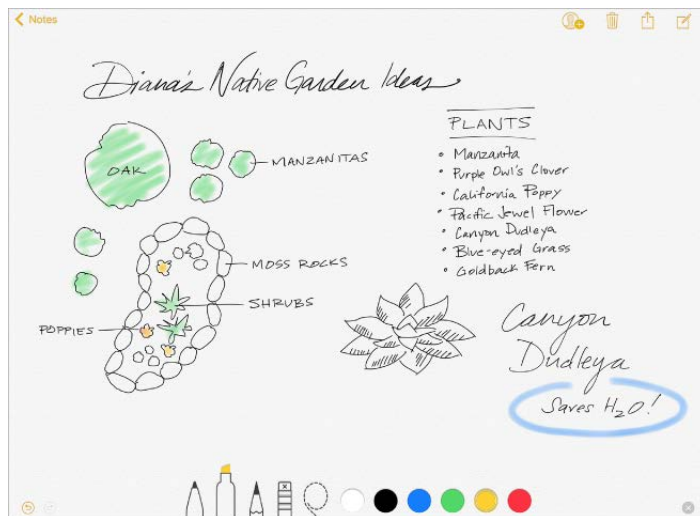 Notes
Diana's Native Garden Ideas
OAK
MANZANITAS
MOSS ROCKS
SHRUBS
POPPIES
PLANTS
• Manzanita
• Purple Owl's Clover
• California Poppy
• Pacific Jewel Flower
• Canyon Dudleya
• Blue-eyed Grass
• Goldback Fern
Canyon
Dudleya
Saves H₂O!